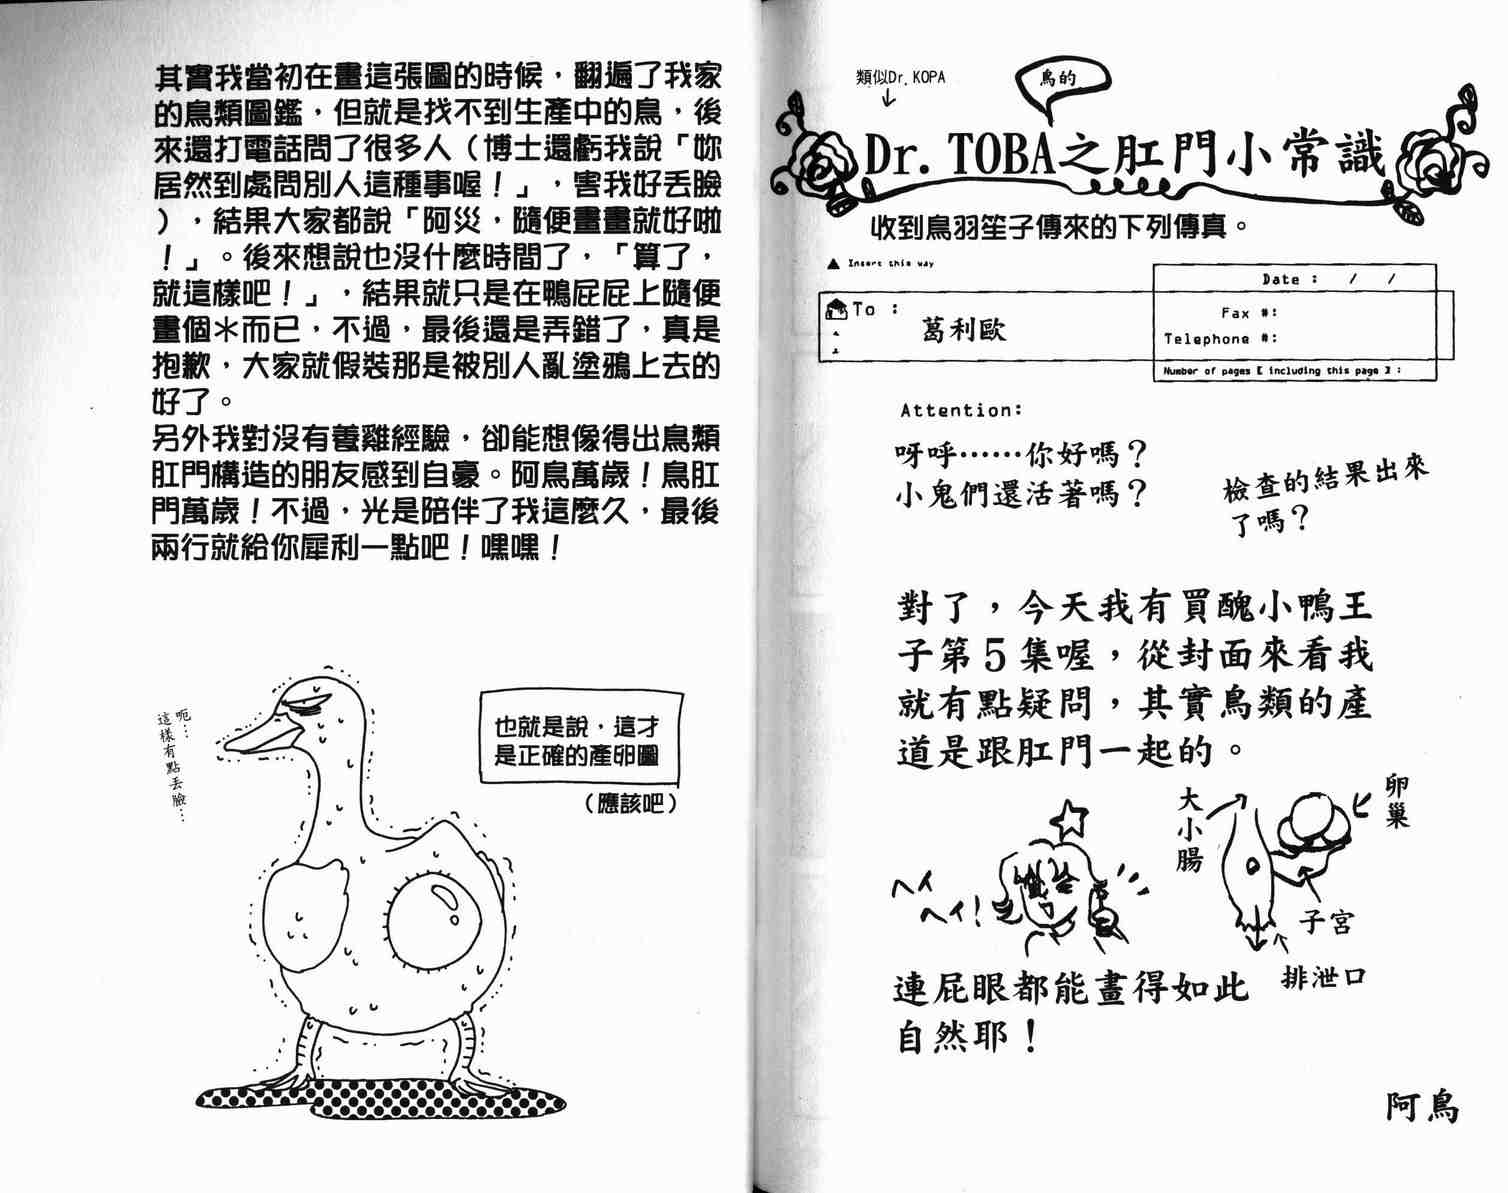 類似Dr.KOPA
鳥的
Dr.TOBA之肛門小常識
收到鳥羽笙子傳來的下列傳真。
▲ Insert this way
Date : / /
To :
葛利歐
Fax #:
Telephone #:
Number of pages [ including this page ] :
Attention:
呀呼……你好嗎？
小鬼們還活著嗎？
檢查的結果出來
了嗎？
對了，今天我有買醜小鴨王
子第５集喔，從封面來看我
就有點疑問，其實鳥類的產
道是跟肛門一起的。
大小腸
卵巢
ヘイ
ヘイ！
子宮
排泄口
連屁眼都能畫得如此
自然耶！
阿鳥
其實我當初在畫這張圖的時候，翻遍了我家
的鳥類圖鑑，但就是找不到生產中的鳥，後
來還打電話問了很多人（博士還虧我說「妳
居然到處問別人這種事喔！」，害我好丟臉
），結果大家都說「阿災，隨便畫畫就好啦
！」。後來想說也沒什麼時間了，「算了，
就這樣吧！」，結果就只是在鴨屁屁上隨便
畫個＊而已，不過，最後還是弄錯了，真是
抱歉，大家就假裝那是被別人亂塗鴉上去的
好了。
另外我對沒有養雞經驗，卻能想像得出鳥類
肛門構造的朋友感到自豪。阿鳥萬歲！鳥肛
門萬歲！不過，光是陪伴了我這麼久，最後
兩行就給你犀利一點吧！嘿嘿！
呃…
這樣有點丟臉…
也就是說，這才
是正確的產卵圖
（應該吧）